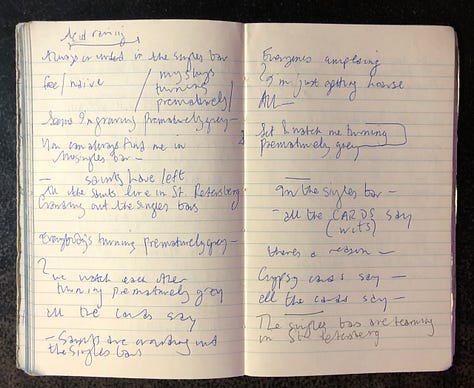 Acid raining
Always in the singles bar
Fee/naive / my ships
turning
prematurely/
Seems I'm growing prematurely grey —
You can always find me in
the singles bar —
— saints have/left
All the saints live in St. Petersburg
Crowding out the singles bars
Everybody's turning prematurely grey —
we watch each other
turning prematurely grey
all the cards say
— Saints are crowding out
the singles bars
Everyone's
I'm just getting hoarse
All —
Sit & watch me turning
prematurely grey
In the singles bar —
— all the CARDS say
(wits)
there's a reason —
Gypsy cards say —
all the cards say —
The singles bars are teeming
in St. Petersburg